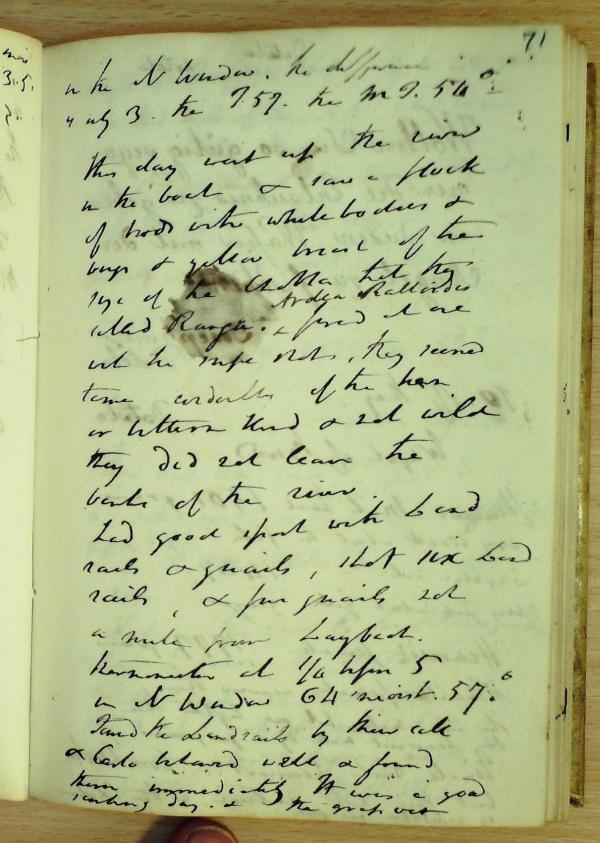 71
in the N Window. the difference
July 3. the T 57. the M T. 54°
This day went up the river
in the boat & saw a flock
of birds with white bodies &
wings & yellow breast of the
size of the that they
Ardea Ralloides
called fired at one
with the snipe shot, they seemed
tame of the hern
or bittern kind & not wild
they did not leave the
banks of the river.
Had good sport with Land
rails & quails, shot six Land
rails, & four quails not
a mile from Laybach.
Thermometer at 1/4 before 5
in N Window 64 moist. 57.°
Found the Landrails by their call
& behaved well & found
them immediately It was a good
day. & the grass wet